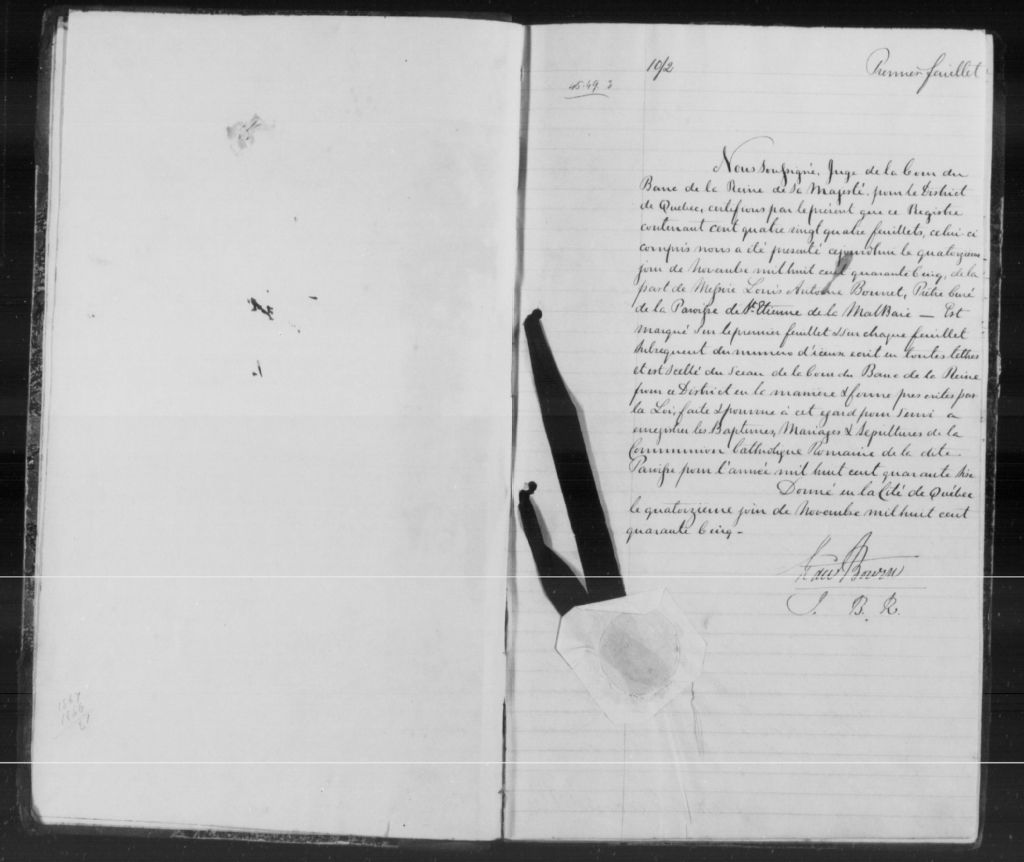 10/2
Premier feuillet
45.49.3
Nous Soussigné, Juge de la Cour du
Banc de la Reine de Sa Majesté, pour le District
de Québec, certifions par le présent que ce Registre
contenant cent quatre vingt quatre feuillets, celui-ci
compris nous a été presenté cejourdhui le quatorzième
jour de Novembre mil huit cent quarante cinq, de la
part de Messire Louis Antoine Bonnet, Prêtre Curé
de la Paroisse de St. Etienne de la MalBaie — Est
marqué sur le premier feuillet & sur chaque feuillet
subsequent du numero d'iceux écrit en toutes lettres
et est Scellé du Sceau de la Cour du Banc de la Reine
pour ce District en la manière & forme prescrites par
la Loi, faite & pourvue à cet egard pour servir à
enregistrer les Baptemes, Mariages & Sepultures de la
Communion Catholique Romaine de la dite
Paroisse pour l'année mil huit cent quarante Six
Donné en la Cité de Québec
le quatorzieme jour de Novembre mil huit cent
quarante Cinq -
Edw Bowen
J. B. R.
1867